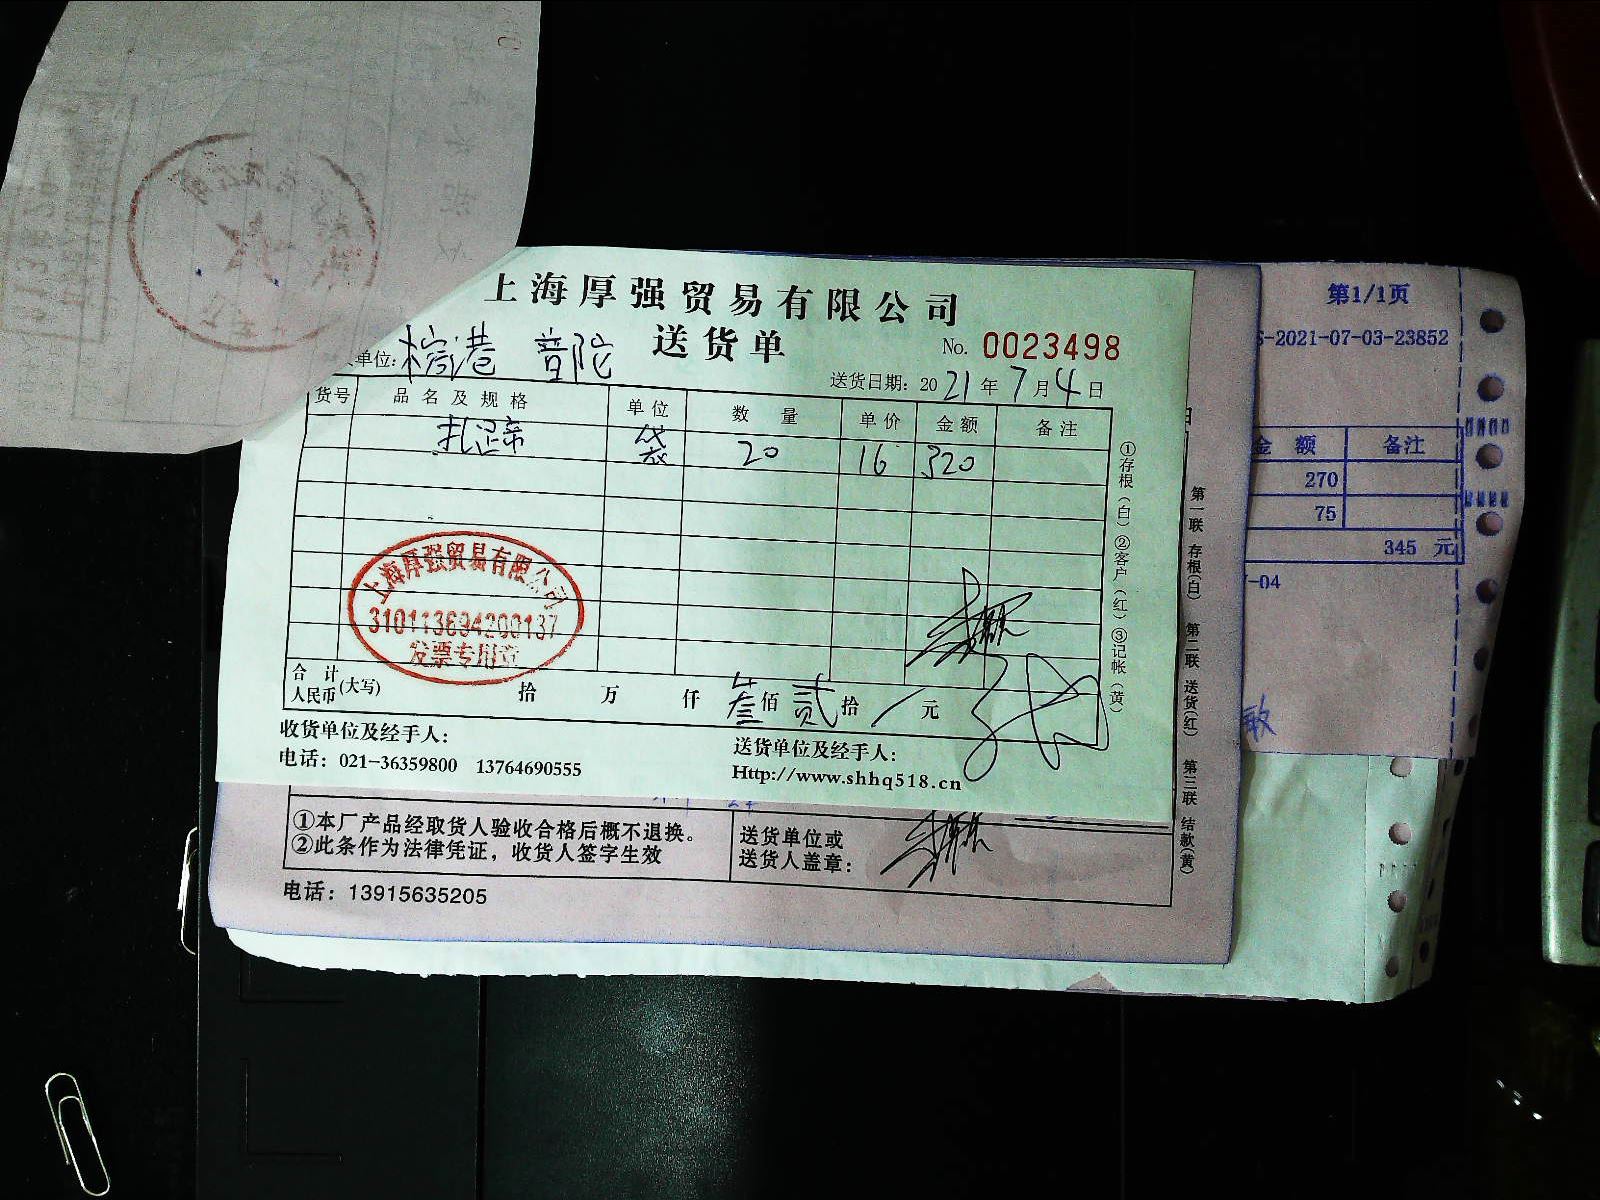 上海厚强贸易有限公司
送货单
No. 0023498
单位: 榕港 普陀
送货日期: 2021年7月4日
货号 品名及规格 单位 数量 单价 金额 备注
扎蹄 袋 20 16 320
①存根(白)②客户(红)③记帐(黄)
上海厚强贸易有限公司
发票专用章
合计
人民币(大写) 拾 万 仟 叁佰 贰拾 / 元
收货单位及经手人:
电话: 021-36359800 13764690555
送货单位及经手人:
Http://www.shhq518.cn
第一联 存根(白) 第二联 送货(红) 第三联 结款(黄)
①本厂产品经取货人验收合格后概不退换。
②此条作为法律凭证，收货人签字生效
送货单位或
送货人盖章:
电话: 13915635205
第1/1页
S-2021-07-03-23852
金 额 备注
270
75
345 元
-04
敏